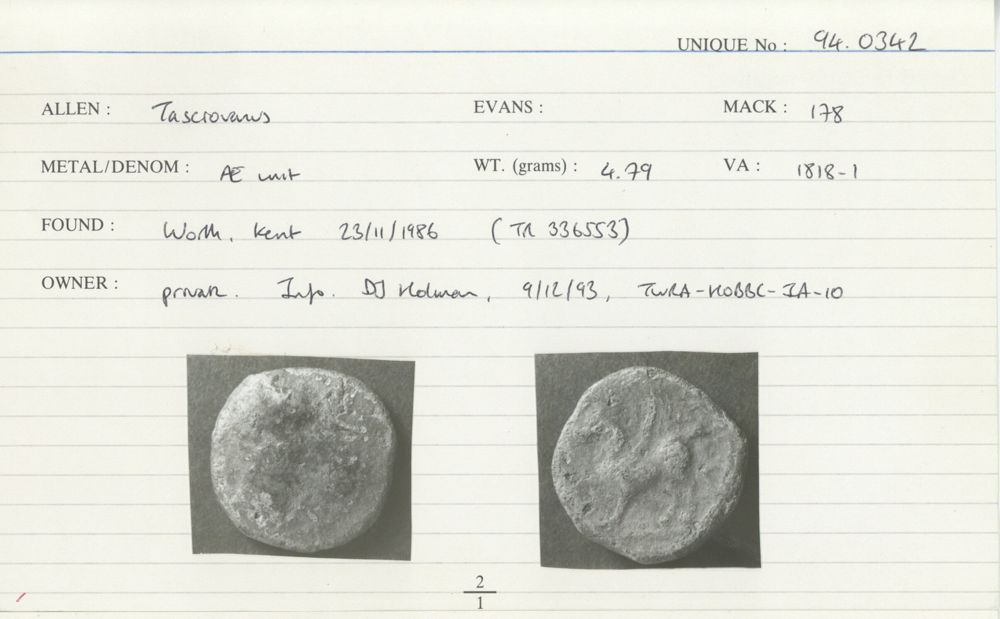 UNIQUE No : 94.0342
ALLEN : Tasciovanus EVANS : MACK : 178
METAL/DENOM : Æ unit WT. (grams) : 4.79 VA : 1818-1
FOUND : Worth, Kent 23/11/1986 (TR 336553)
OWNER : private. Info. DJ Holman, 9/12/93,
2
1